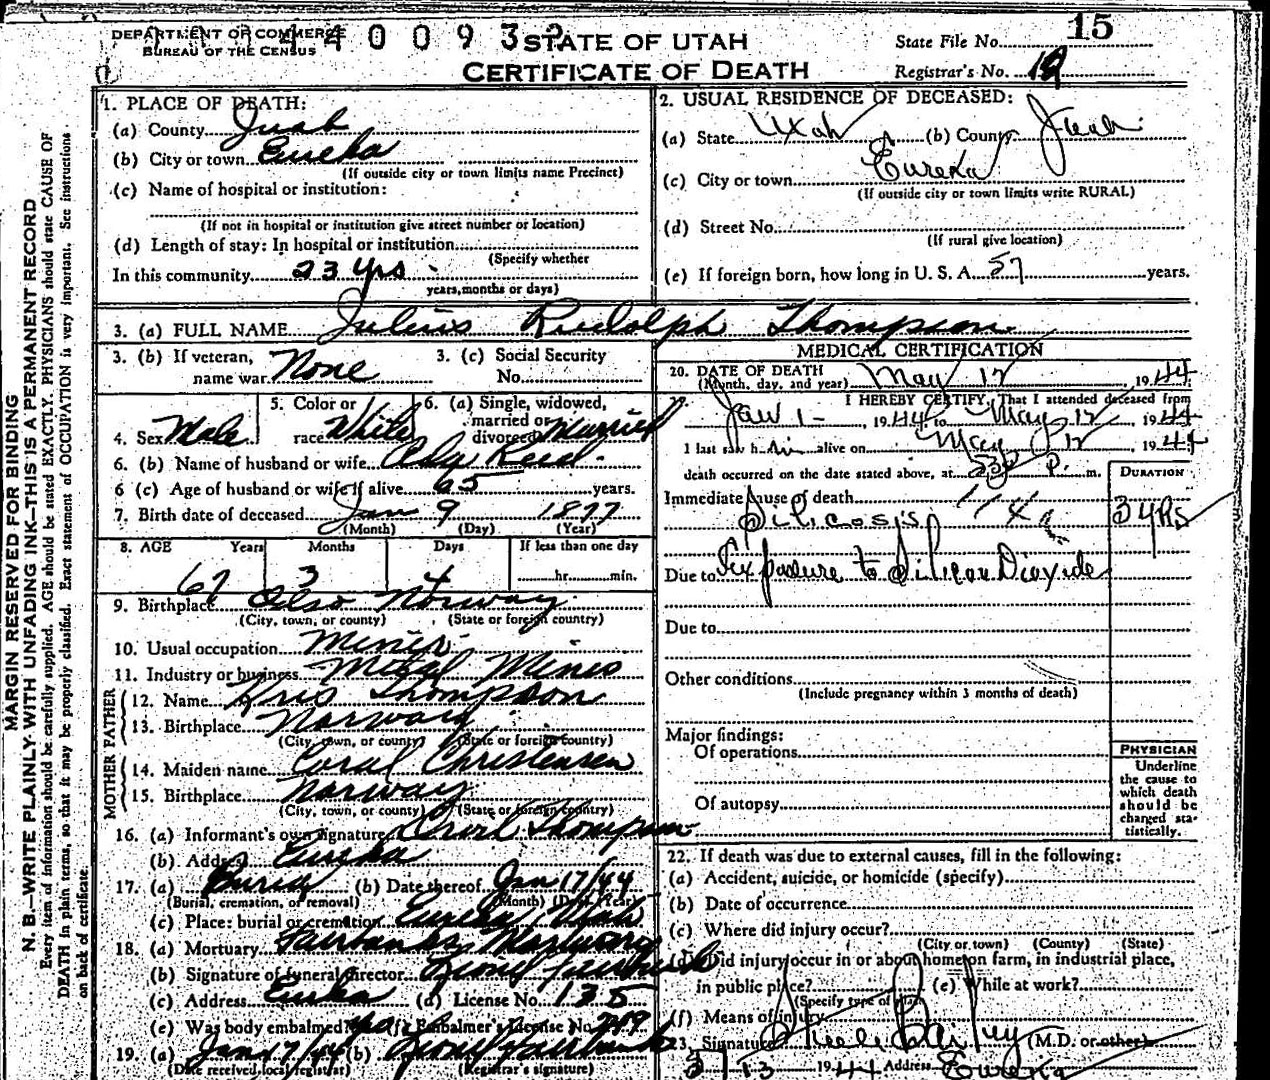 DEPARTMENT OF COMMERCE
BUREAU OF THE CENSUS
4 4 0 0 9 3
STATE OF UTAH
CERTIFICATE OF DEATH
State File No. 15
Registrar's No. 19
MARGIN RESERVED FOR BINDING
N. B.—WRITE PLAINLY WITH UNFADING INK—THIS IS A PERMANENT RECORD
Every item of information should be carefully supplied. AGE should be stated EXACTLY. PHYSICIANS should state CAUSE OF
DEATH in plain terms, so that it may be properly classified. Exact statement of OCCUPATION is very important. See instructions
on back of certificate.
1. PLACE OF DEATH:
(a) County Juab
(b) City or town Eureka
(If outside city or town limits name Precinct)
(c) Name of hospital or institution:
(If not in hospital or institution give street number or location)
(d) Length of stay: In hospital or institution
(Specify whether
In this community 23 yrs.
years, months or days)
2. USUAL RESIDENCE OF DECEASED:
(a) State Utah (b) County Juab
(c) City or town Eureka
(If outside city or town limits write RURAL)
(d) Street No.
(If rural give location)
(e) If foreign born, how long in U. S. A. 57 years.
3. (a) FULL NAME Julius Rudolph Thompson
3. (b) If veteran, name war None
3. (c) Social Security No.
4. Sex Male
5. Color or race White
6. (a) Single, widowed, married or divorced Married
6. (b) Name of husband or wife Reid
6 (c) Age of husband or wife if alive 65 years.
7. Birth date of deceased Jan 9 1877
(Month) (Day) (Year)
8. AGE Years Months Days If less than one day
67 3 4 hr. min.
9. Birthplace Oslo Norway
(City, town, or county) (State or foreign country)
10. Usual occupation Miner
11. Industry or business Metal Mines
FATHER
12. Name Kris Thompson
13. Birthplace Norway
(City, town, or county) (State or foreign country)
MOTHER
14. Maiden name Coral Christensen
15. Birthplace Norway
(City, town, or county) (State or foreign country)
16. (a) Informant's own signature Thompson
(b) Address Eureka
17. (a) Burial (b) Date thereof Jan 17/44
(Burial, cremation, or removal) (Month) (Day) (Year)
(c) Place: burial or cremation Eureka, Utah
18. (a) Mortuary Fairbanks Mortuary
(b) Signature of funeral director Fairbanks
(c) Address Eureka (d) License No. 135
(e) Was body embalmed? yes (f) Embalmer's License No. 249
19. (a) Jan 17/44 (b) Fairbanks
(Date received local registrar) (Registrar's signature)
MEDICAL CERTIFICATION
20. DATE OF DEATH
(Month, day, and year) May 12, 1944
I HEREBY CERTIFY, That I attended deceased from
Jan 1-, 1944 to May 12, 1944
I last saw him alive on May 12, 1944
death occurred on the date stated above, at P. m.
DURATION
Immediate cause of death
Silicosis 3 yrs
Due to Exposure to Silicon Dioxide
Due to
Other conditions
(Include pregnancy within 3 months of death)
Major findings:
Of operations
Of autopsy
PHYSICIAN
Underline
the cause to
which death
should be
charged sta-
tistically.
22. If death was due to external causes, fill in the following:
(a) Accident, suicide, or homicide (specify)
(b) Date of occurrence
(c) Where did injury occur?
(City or town) (County) (State)
(d) Did injury occur in or about home, on farm, in industrial place,
in public place? (e) While at work?
(Specify type of place)
(f) Means of injury
23. Signature Steele Bailey (M.D. or other)
1944 Address Eureka